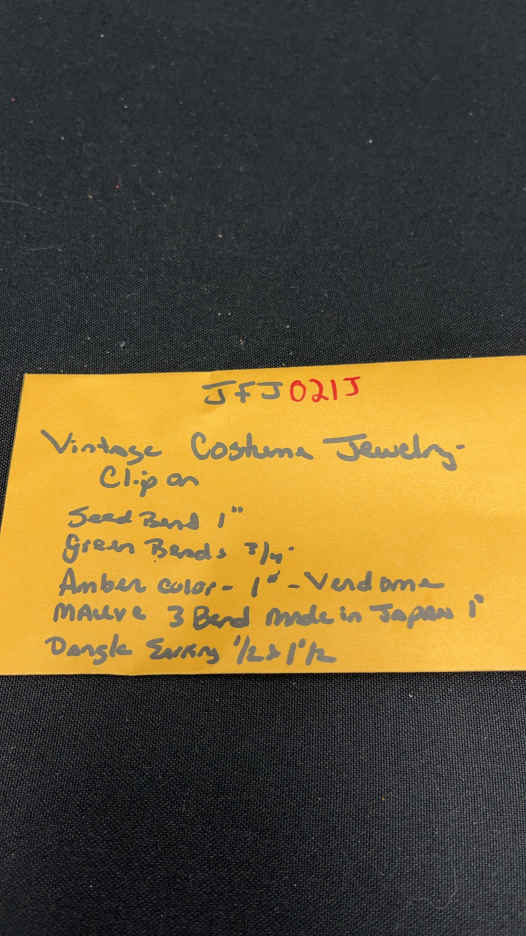 JFJ021J
Vintage Costume Jewelry-
Clip on
Seed Bead 1"
Green Beads 3/4"
Amber color - 1" - Vendome
MAUVE 3 Bead made in Japan 1"
Dangle Earring 1/2 x 1 1/2